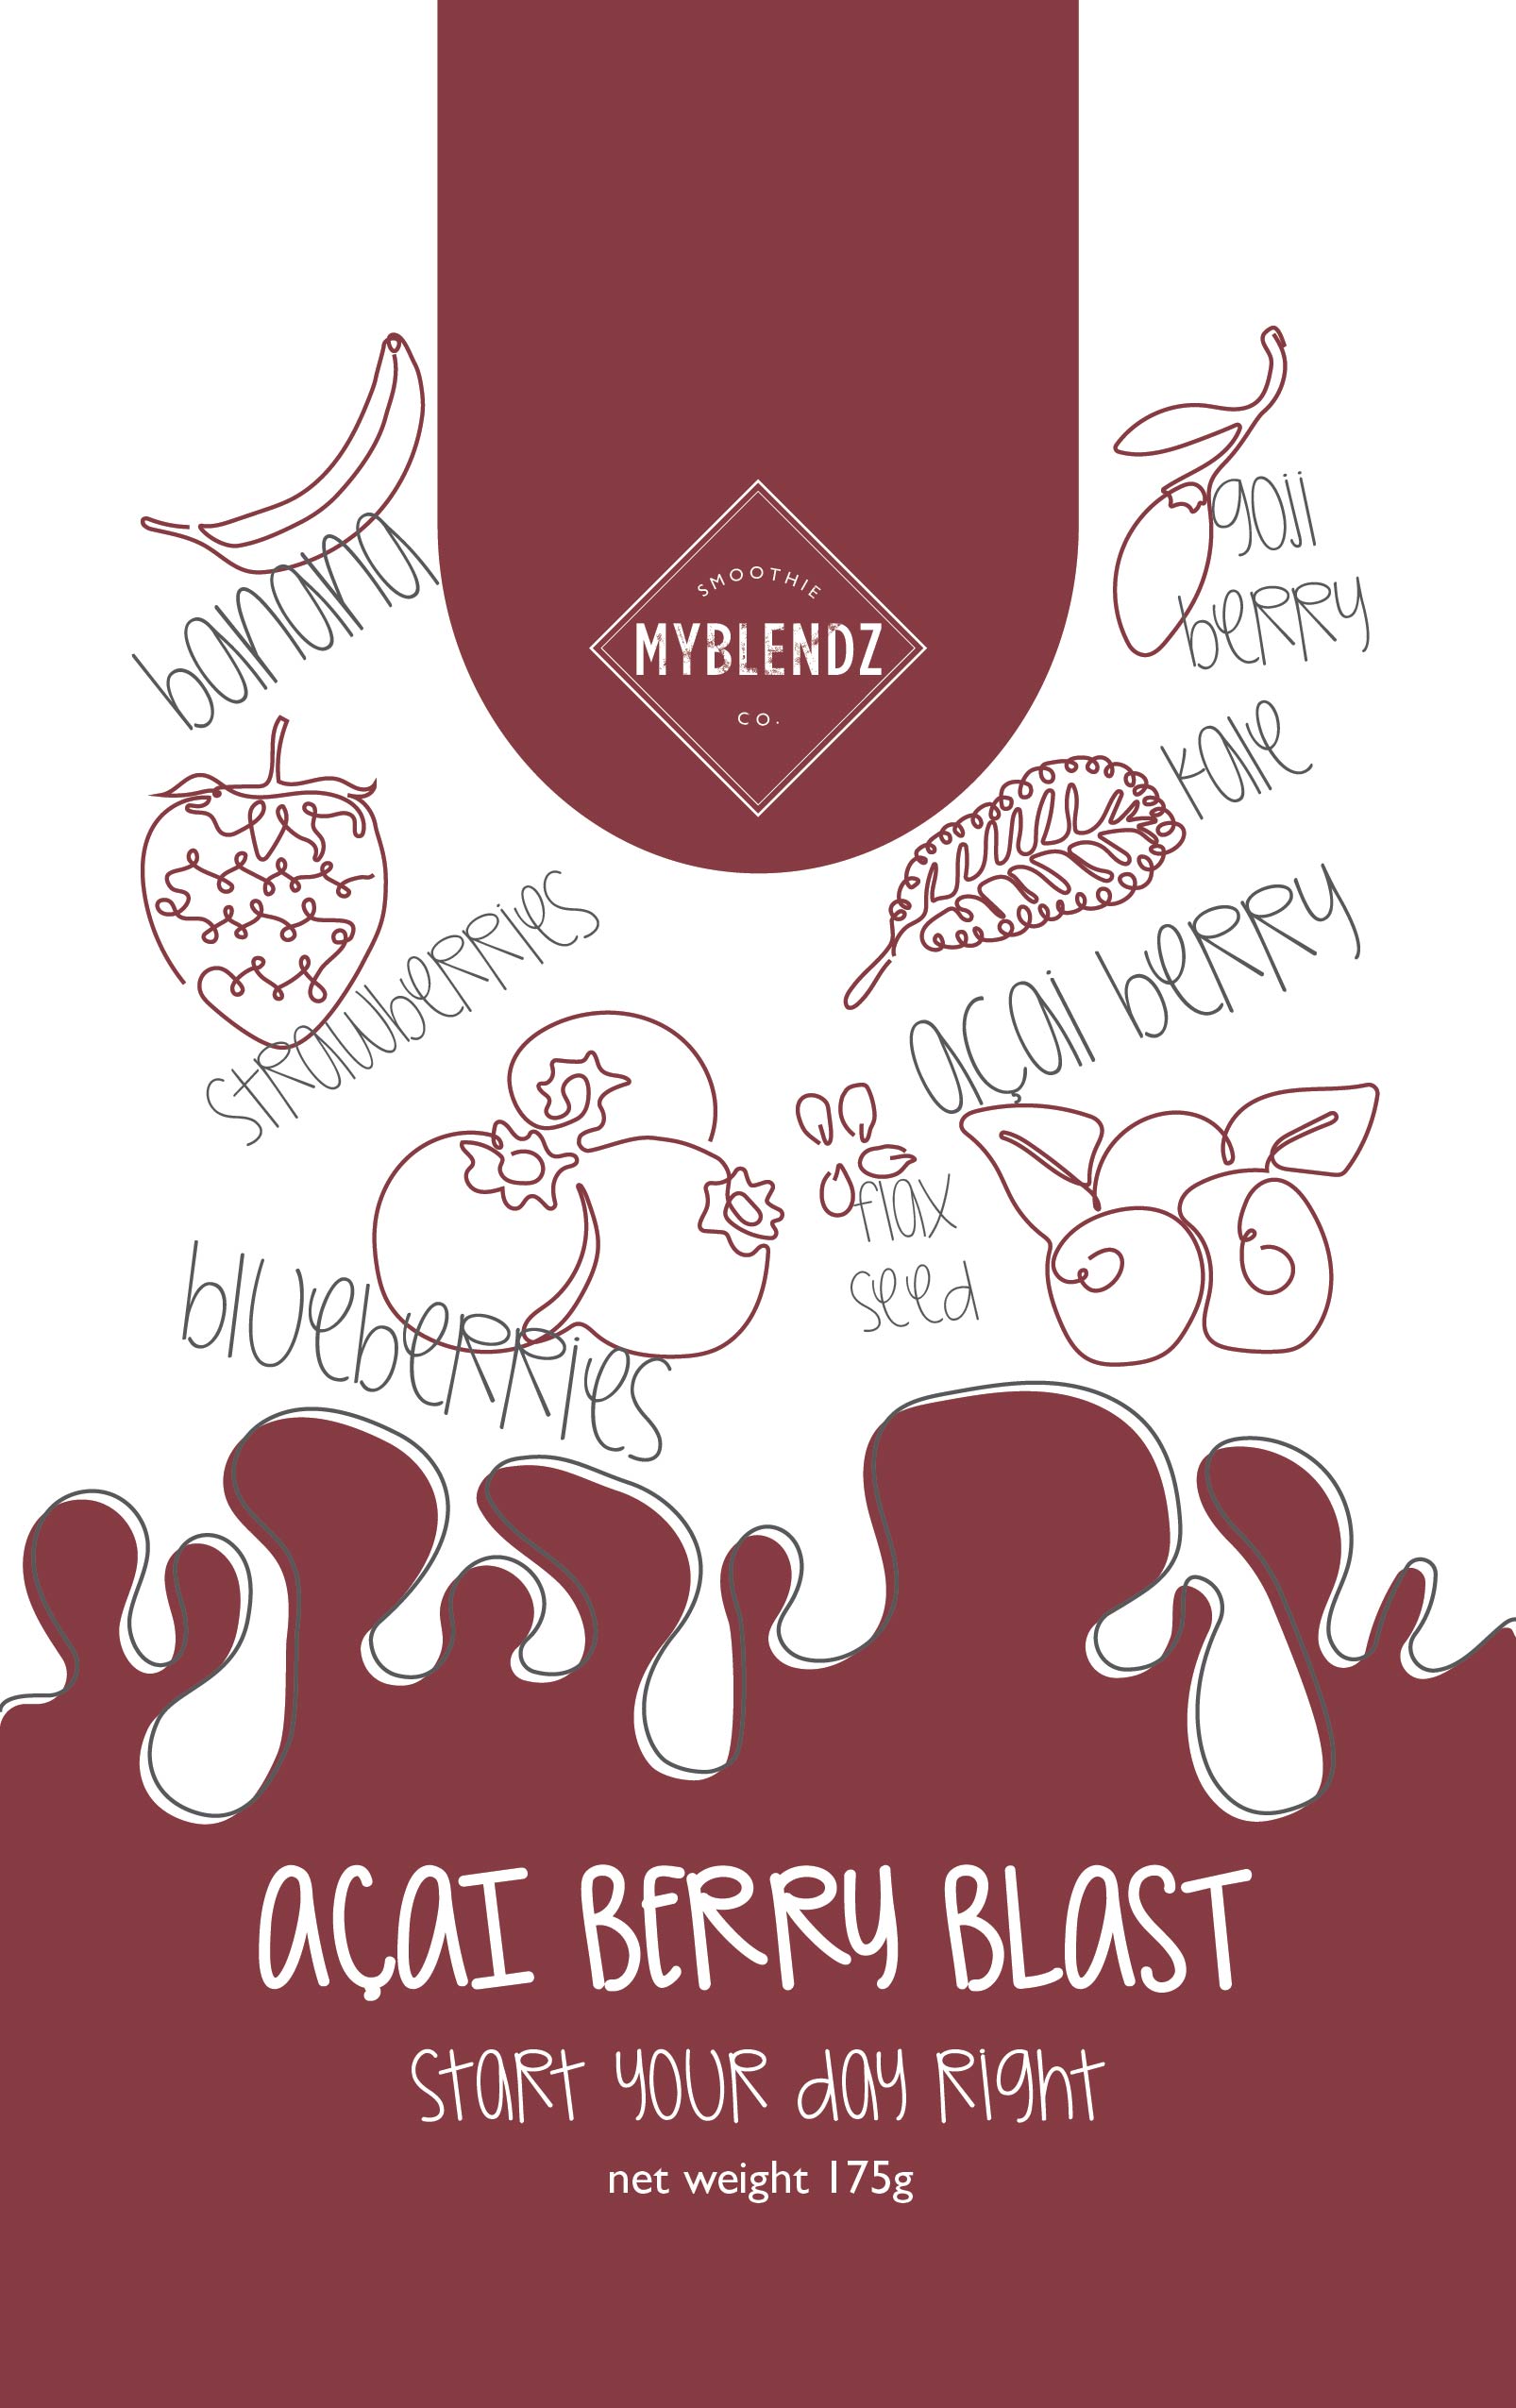 SMOOTHIE
MYBLENDZ
CO.
banana
goji
beRRy
kale
stRawbeRRies
açai beRRy
flax
seed
bluebeRRies
açaI BERRy BLaST
staRt youR day Right
net weight 175g